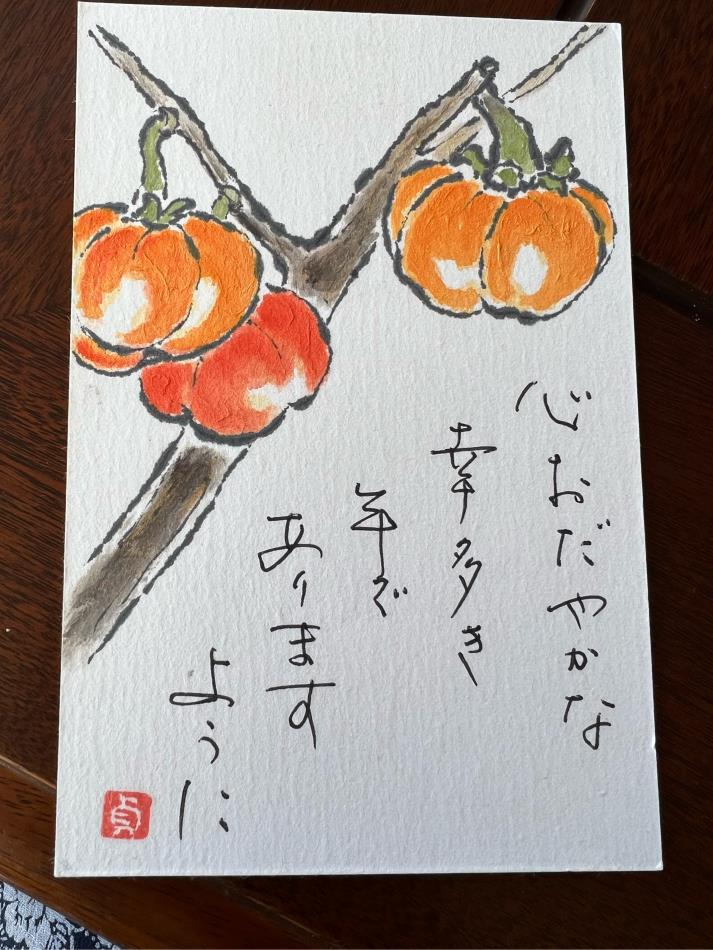 心おだやかな
幸多き
年で
あります
ように
貞